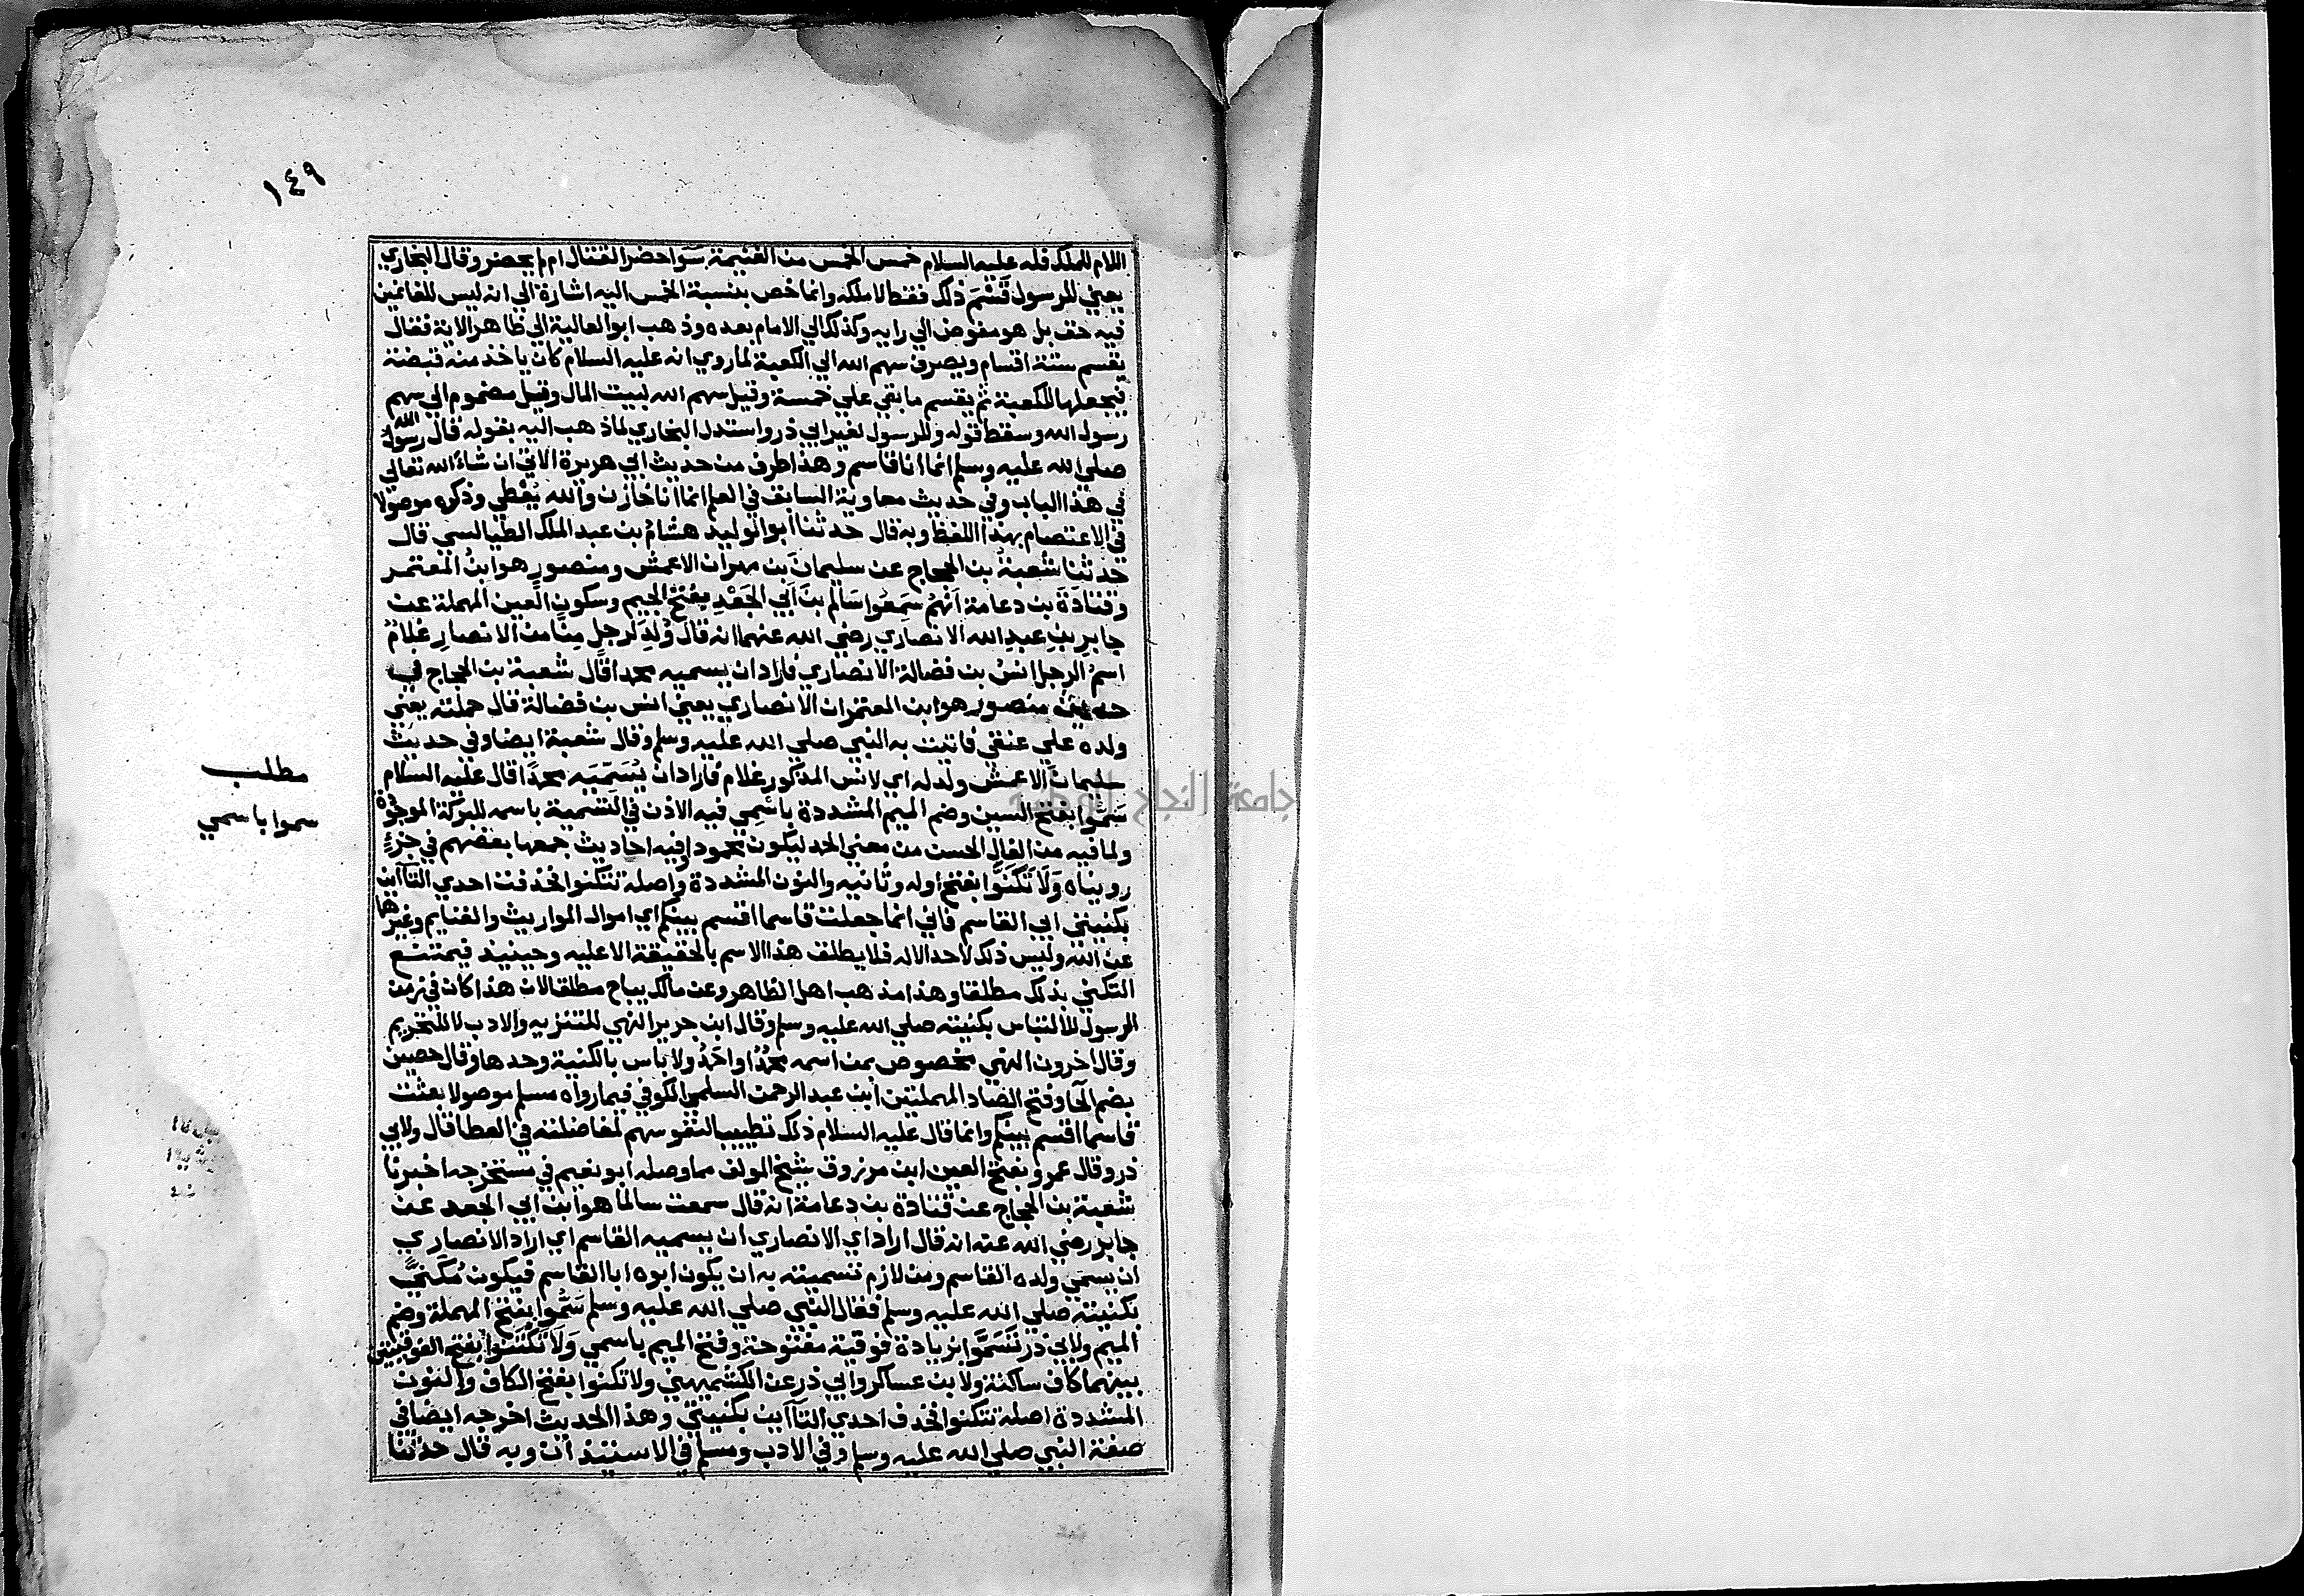 ١٤٩
اللام للملك فله عليه السلام خمس الخمس من الغنيمة سوا حضر القتال ام لم يحضر وقال البخاري
يعني للرسول قَسْمَ ذلك فقط لا ملكه وانما خص بنسبة الخمس اليه اشارة الي انه ليس للغانمين
فيه حق بل هو مفوض الي رايه وكذلك الي الامام بعده وذهب ابو العالية الي ظاهر الاية فقال
يقسم ستة اقسام ويصرف سهم الله الي الكعبة لما روي انه عليه السلام كان ياخذ منه قبضة
فيجعلها للكعبة ثم يقسم ما بقي علي خمسة وقيل سهم الله لبيت المال وقيل مضموم الي سهم
رسول الله وسقط قوله وللرسول لغير ابي ذر واستدل البخاري لما ذهب اليه بقوله قال رسول الله
صلي الله عليه وسلم انما انا قاسم وهذا طرف من حديث ابي هريرة الاتي ان شاء الله تعالي
في هذا الباب وفي حديث معاوية السابق في العلم انما انا خازن والله يُعْطي وذكره موصولا
في الاعتصام بهذا اللفظ وبه قال حدثنا ابو الوليد هشامُ بن عبد الملك الطيالسي قال
حدثنا شعبةُ بن الحجاج عن سليمانَ بن مهران الاعمش ومنصورٍ هو ابنُ المعتمر
وقتادَةَ بن دعامة اَنهمْ سَمِعُوا سَالمَ بنَ اَبي الجَعْدِ بفتح الجيم وسكون العين المهملة عن
جابرِ بنِ عبدِ الله الانصاري رضي الله عنهما انه قال وُلِدَ لرجلٍ مِنَّا من الانصارِ غلامٌ
اسمُ الرجل انسُ بن فضالة الانصاري فاراد ان يسميه محمدا قال شعبة بن الحجاج في
حديث منصور هو ابن المعتمر ان الانصاري يعني انس بن فضالة قال حملته يعني
ولده علي عنقي فاتيت به النبي صلي الله عليه وسلم وقال شعبة ايضا وفي حديث
سليمانَ الاعمش ولد له اي لانس المذكور غلام فاراد ان يُسَمِّيَه محمدًا قال عليه السلام
سَمُّوا بفتح السين وضم الميم المشددة باسْمِي فيه الاذن في التسمية باسمه للبركة الموجودة
ولما فيه من الفال الحسن من معني الحمد ليكون محمودا وفيه احاديث جمعها بعضهم في جزءٍ
رويناه وَلَا تَكَنَّوْا بفتح اوله وثانيه والنون المشددة واصله تتكنوا فحذفت احدي التآاين
بكنيتي ابي القاسم فاني انما جعلت قاسما اقسم بينكم اي اموال المواريث والغنايم وغيرها
عن الله وليس ذلك لاحد الا له فلا يطلق هذا الاسم بالحقيقة الا عليه وحينيذ فيمتنع
التكني بذلك مطلقا وهذا مذهب اهل الظاهر وعن مالك يباح مطلقا لان هذا كان في زمن
الرسول للالتباس بكنيته صلي الله عليه وسلم وقال ابن جرير النهي للتنزيه والادب لا للتحريم
وقال اخرون النهي مخصوص بمن اسمه محمدُ او احمدُ ولا باس بالكنية وحدها وقال حصين
بضم الحآ وفتح الصاد المهملتين ابن عبد الرحمن السلمي الكوفي فيما رواه مسلم موصولا بعثت
قاسما اقسم بينكم وانما قال عليه السلام ذلك تطييبا لنفوسهم لمفاضلته في العطا قال ولابي
ذر وقال عمرو بفتح العين ابن مرزوق شيخ المولف مما وصله ابو نعيم في مستخرجه اخبرنا
شعبة بن الحجاج عن قتادة بن دعامة انه قال سمعت سالما هو ابن ابي الجعد عن
جابر رضي الله عنه انه قال اراد اي الانصاري ان يسميه القاسم اي اراد الانصاري
ان يسمي ولده القاسم ومن لازم تسميته به ان يكون ابوه ابا القاسم فيكون مُكَنًّي
بكنيته صلي الله عليه وسلم فقال النبي صلي الله عليه وسلم سَمُّوا بفتح المهملة وضم
الميم ولابي ذر تَسَمَّوا بزيادة فوقية مفتوحة وفتح الميم باسمي وَلَا تَكْتَنُوا بفتح الفوقيتين
بينهما كاف ساكنة ولابن عساكر وابي ذر عن الكشميهني ولا تكنوا بفتح الكاف والنون
المشددة اصله تتكنوا فحذف احدي التآاين بكنيتي وهذا الحديث اخرجه ايضا في
صفة النبي صلي الله عليه وسلم وفي الادب ومسلم في الاستيذان وبه قال حدثنا
مطلب
سموا باسمي
جامعة النجاح الوطنية